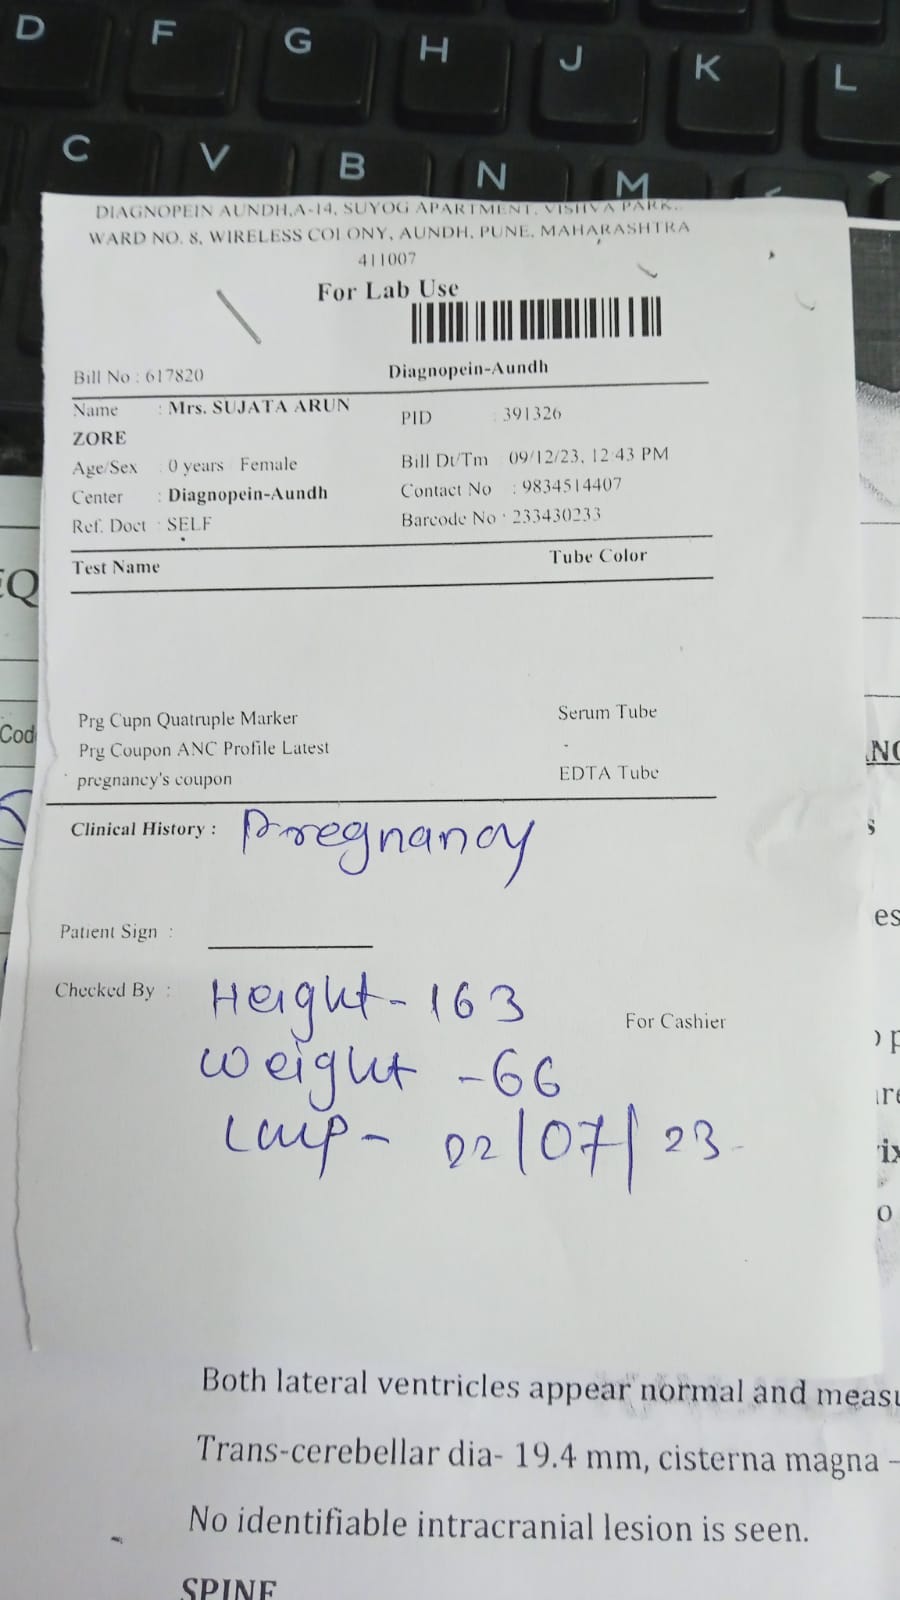 D F G H J K L
C V B N M
DIAGNOPEIN AUNDH,A-14, SUYOG APARTMENT, VISHVA PARK,
WARD NO. 8, WIRELESS COLONY, AUNDH, PUNE, MAHARASHTRA
411007
For Lab Use
Bill No : 617820 Diagnopein-Aundh
Name : Mrs. SUJATA ARUN
ZORE
PID : 391326
Age/Sex : 0 years Female
Bill Dt/Tm 09/12/23, 12:43 PM
Center : Diagnopein-Aundh
Contact No : 9834514407
Ref. Doct : SELF
Barcode No : 233430233
Test Name Tube Color
Prg Cupn Quatruple Marker Serum Tube
Prg Coupon ANC Profile Latest -
pregnancy's coupon EDTA Tube
Clinical History : Pregnancy
Patient Sign :
Checked By : Height - 163
For Cashier
Weight - 66
LMP - 22/07/23
EQ
Cod
es
Both lateral ventricles appear normal and measu
Trans-cerebellar dia- 19.4 mm, cisterna magna –
No identifiable intracranial lesion is seen.
SPINE